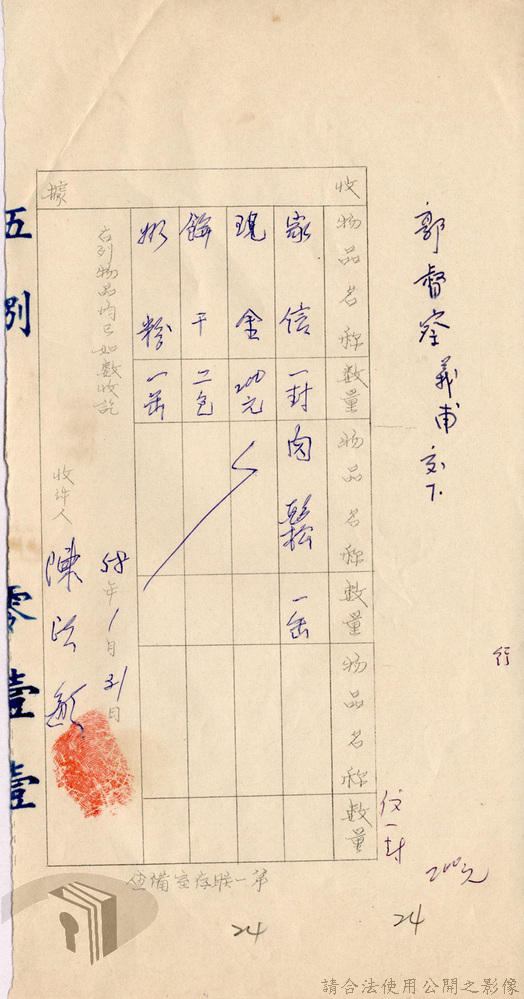 郭督察義甫交下
收 據
物品名称 數量 物品名称 數量 物品名称 數量
家信 一封 肉鬆 一缶
現金 200元
餅干 二包
奶粉 一缶
右列物品均已如數收訖
收件人 陳
58年1月31日
第一联存室備
信一封
200元
行
24
24
五 別
零壹壹
請合法使用公開之影像